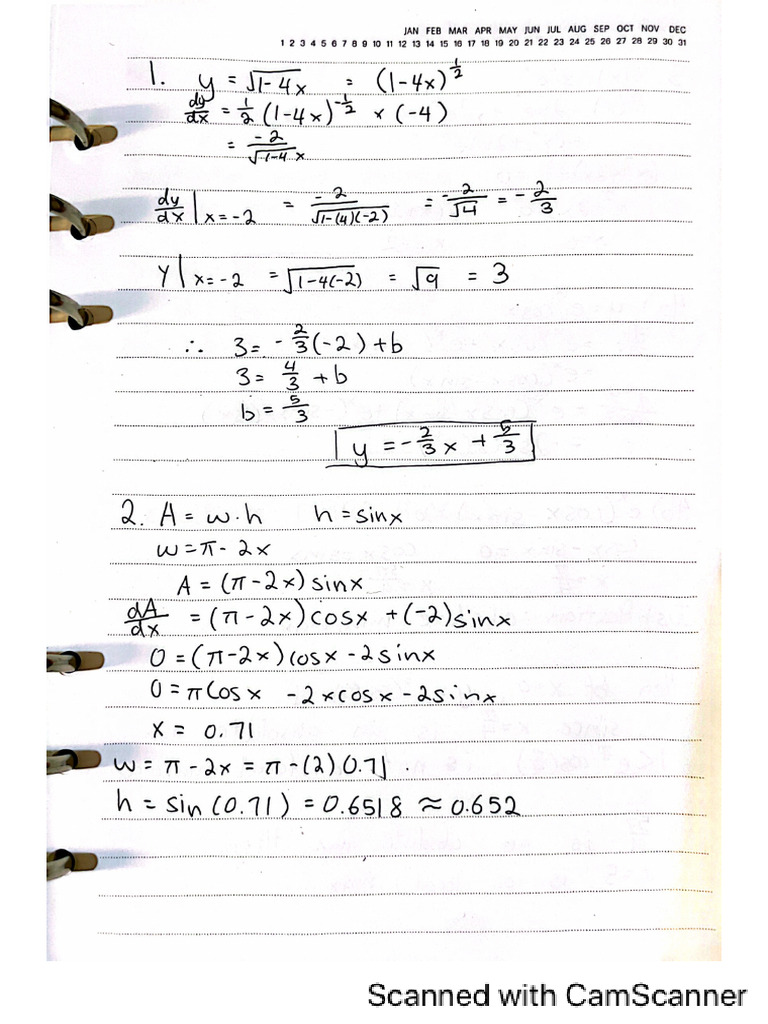 JAN FEB MAR APR MAY JUN JUL AUG SEP OCT NOV DEC
1 2 3 4 5 6 7 8 9 10 11 12 13 14 15 16 17 18 19 20 21 22 23 24 25 26 27 28 29 30 31
1. y = √1-4x = (1-4x)^1/2
dy/dx = 1/2 (1-4x)^-1/2 × (-4)
= -2/√1-4x
dy/dx | x=-2 = -2/√1-(4)(-2) = -2/√4 = -2/3
y | x=-2 = √1-4(-2) = √9 = 3
∴ 3 = -2/3(-2) + b
3 = 4/3 + b
b = 5/3
y = -2/3 x + 5/3
2. A = w·h h = sinx
w = π - 2x
A = (π-2x) sinx
dA/dx = (π-2x) cosx + (-2) sinx
0 = (π-2x) cosx - 2sinx
0 = π cosx - 2xcosx - 2sinx
x = 0.71
w = π - 2x = π - (2) 0.71.
h = sin (0.71) = 0.6518 ≈ 0.652
Scanned with CamScanner